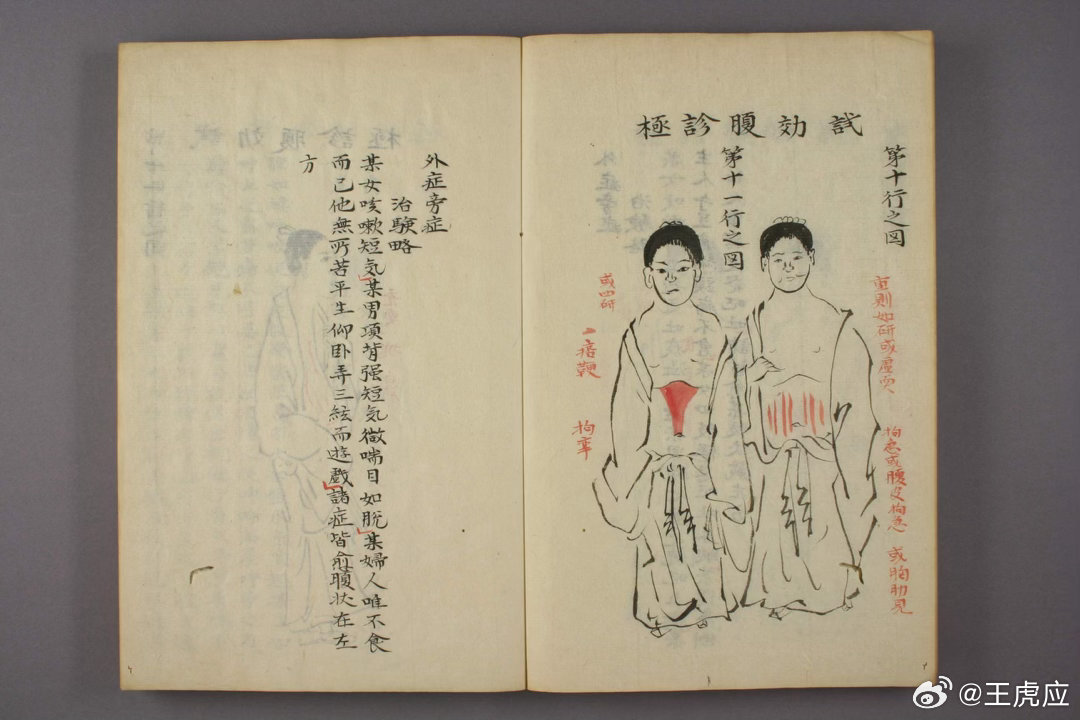 試効腹診極
第十行之図
重則如研或虚耎
拘急或腹皮拘急 或胸肋見
第十一行之図
痞鞕
拘挛
外症旁症
治験略
某女咳嗽短気某男項背强短気微喘目如脱某婦人唯不食
而已他無所苦平生仰卧弄三絃而遊戯諸症皆愈腹状在左
方
@王虎应